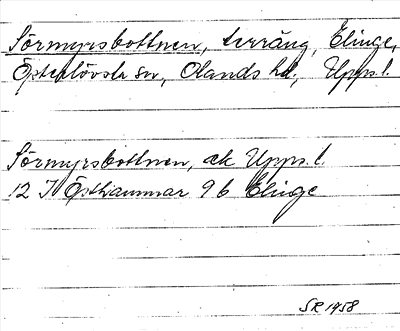 Sörmyrsbottnen, terräng, Elinge,
Österlövsta sn, Olands hd, Upps. l.
Sörmyrsbottnen, ek Upps. l.
12 I Östhammar 9 b Elinge
SR 1958